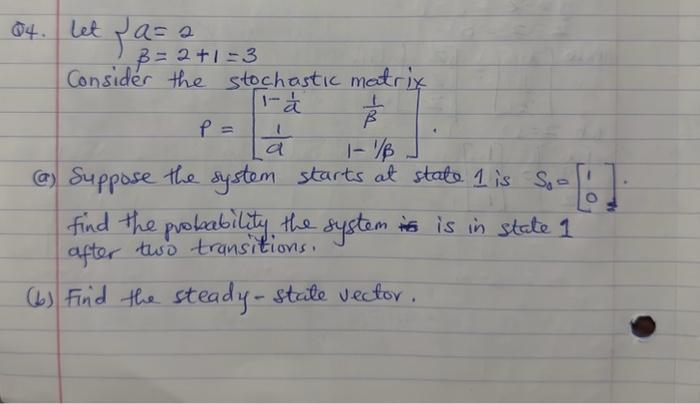 Q4. Let { a = 2
β = 2+1 = 3
Consider the stochastic matrix
P = [ 1 - 1/a 1/β
1/a 1 - 1/β ] .
(a) Suppose the system starts at state 1 is S₀ = [ 1
0 ] .
find the probability the system is in state 1
after two transitions.
(b) Find the steady-state vector.